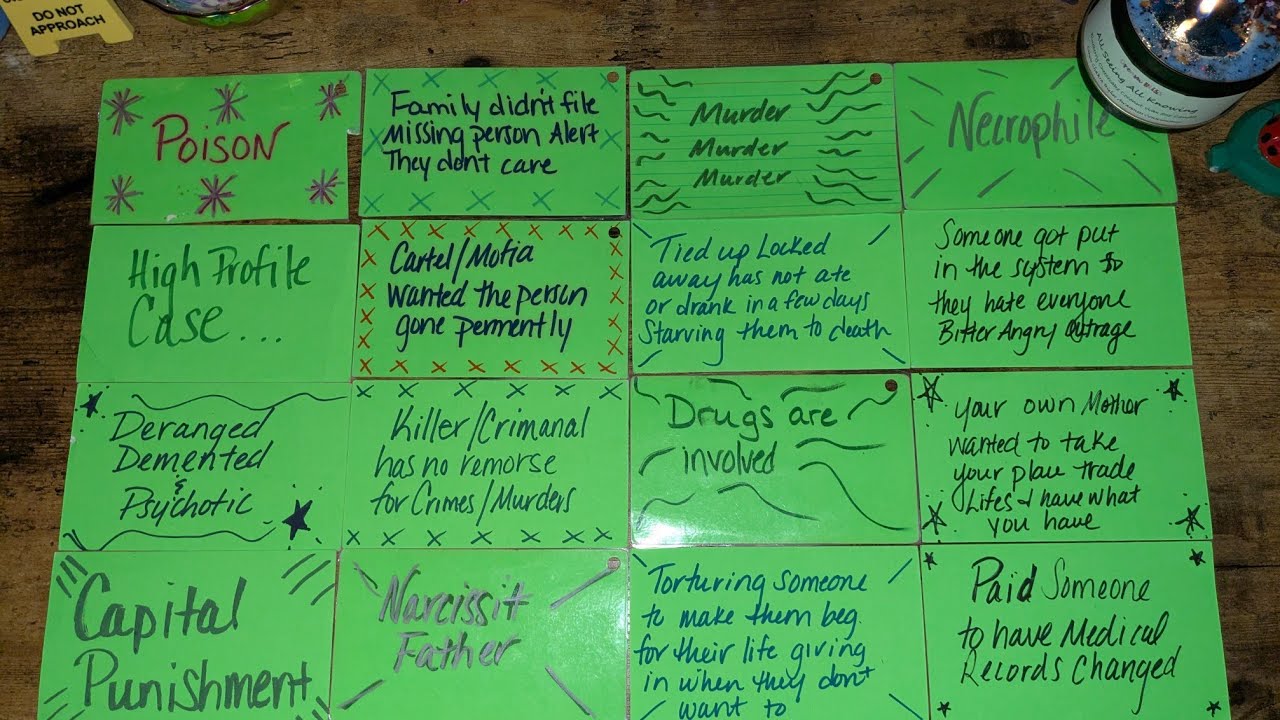 DO NOT
APPROACH
All Seeing All Knowing
POISON
Family didn't file
Missing person Alert
They don't care
Murder
Murder
Murder
Necrophile
High Profile
Case...
Cartel/Mofia
Wanted the person
gone permently
Tied up Locked
away has not ate
or drank in a few days
Starving them to death
Someone got put
in the system so
they hate everyone
Bitter Angry Outrage
Deranged
Demented
&
Psychotic
Killer/Crimanal
has no remorse
for Crimes/Murders
Drugs are
involved
your own Mother
wanted to take
your place trade
Lifes & have what
you have
Capital
Punishment
Narcissit
Father
Torturing someone
to make them beg
for their life giving
in when they don't
want to
Paid Someone
to have Medical
Records Changed